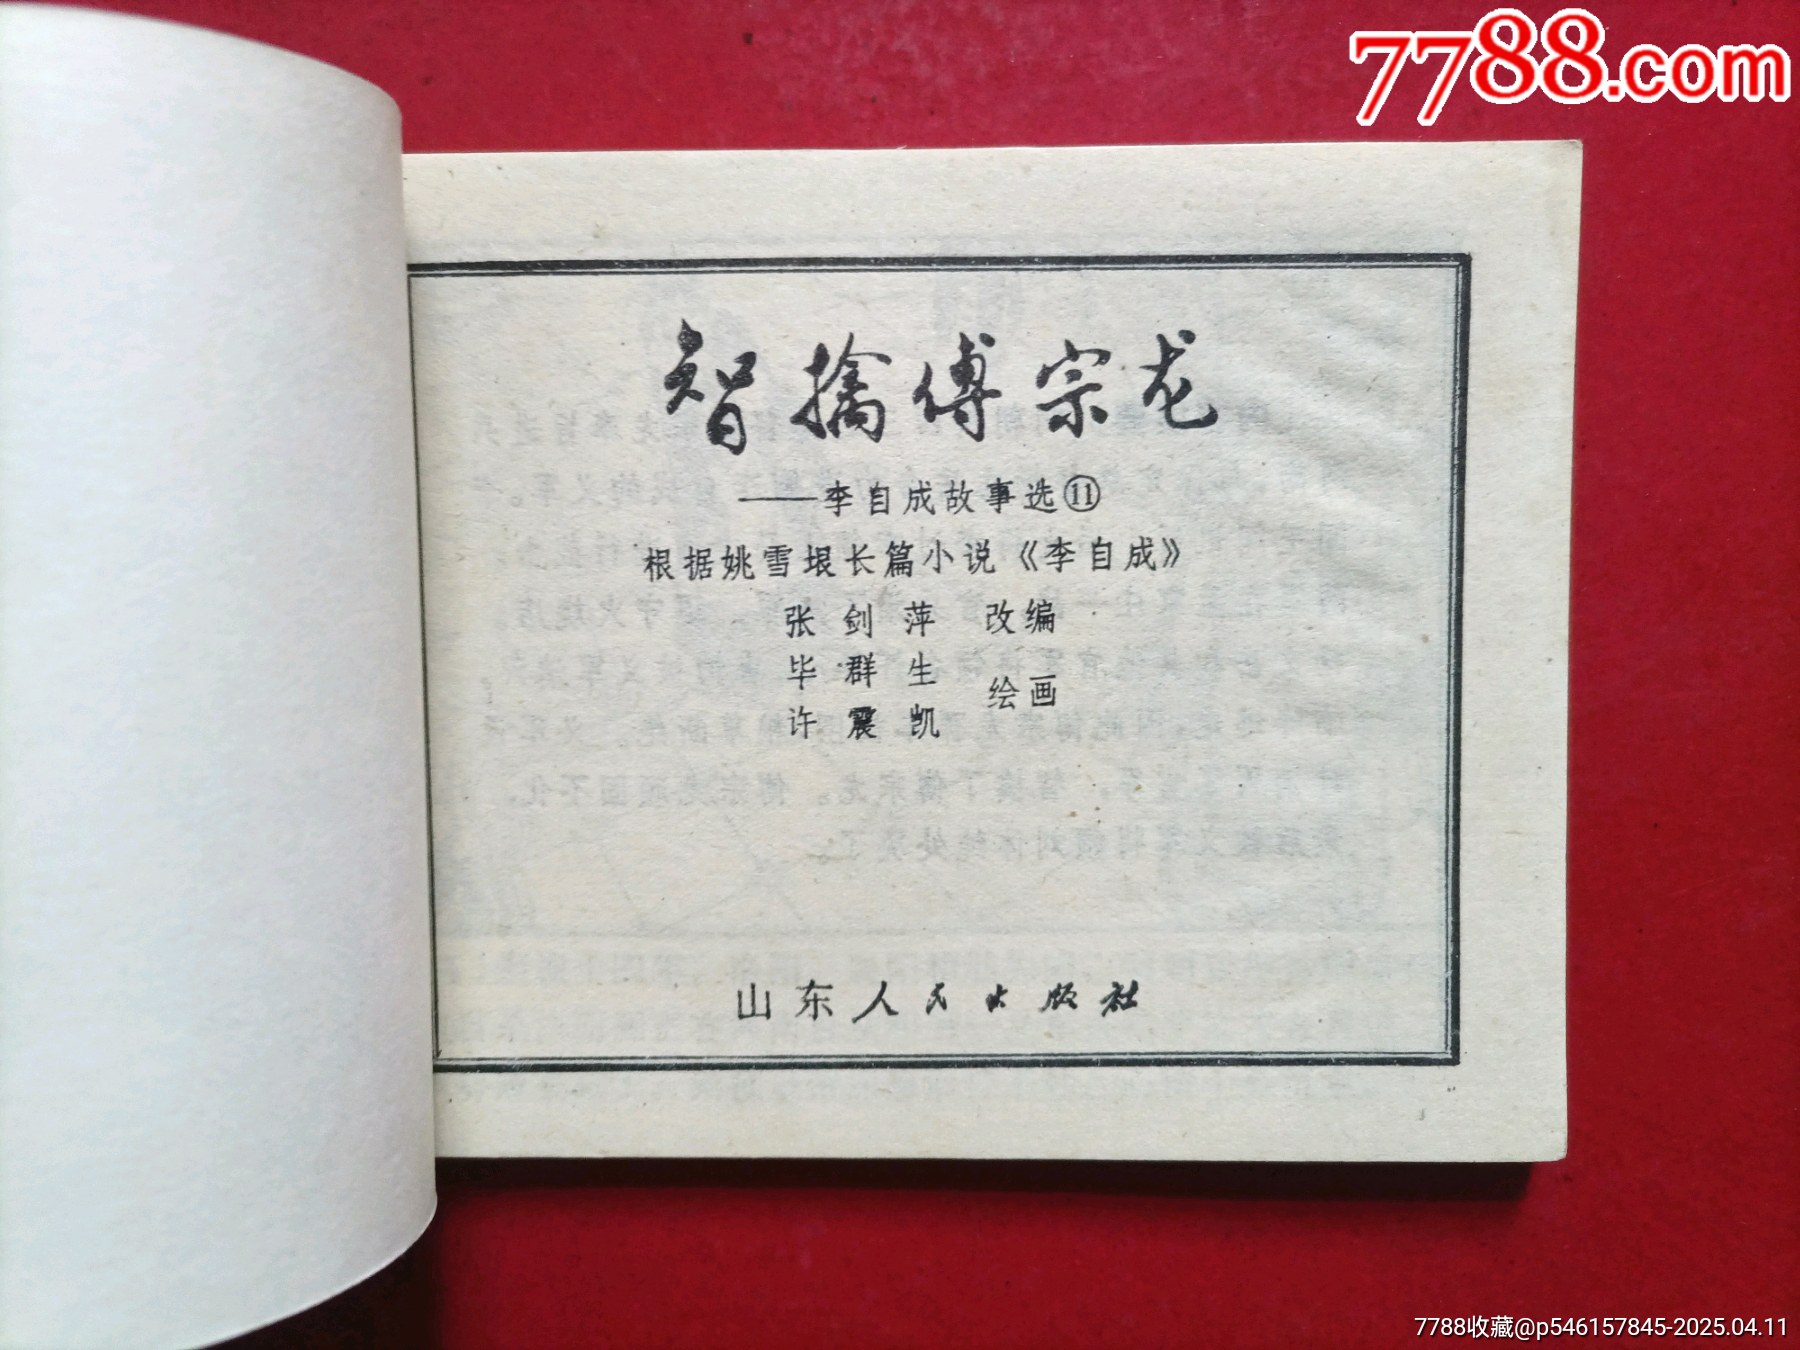 7788.com
智擒傅宗龙
——李自成故事选⑪
根据姚雪垠长篇小说《李自成》
张剑萍 改编
毕群生
许震凯 绘画
山东人民出版社
7788收藏@p546157845-2025.04.11